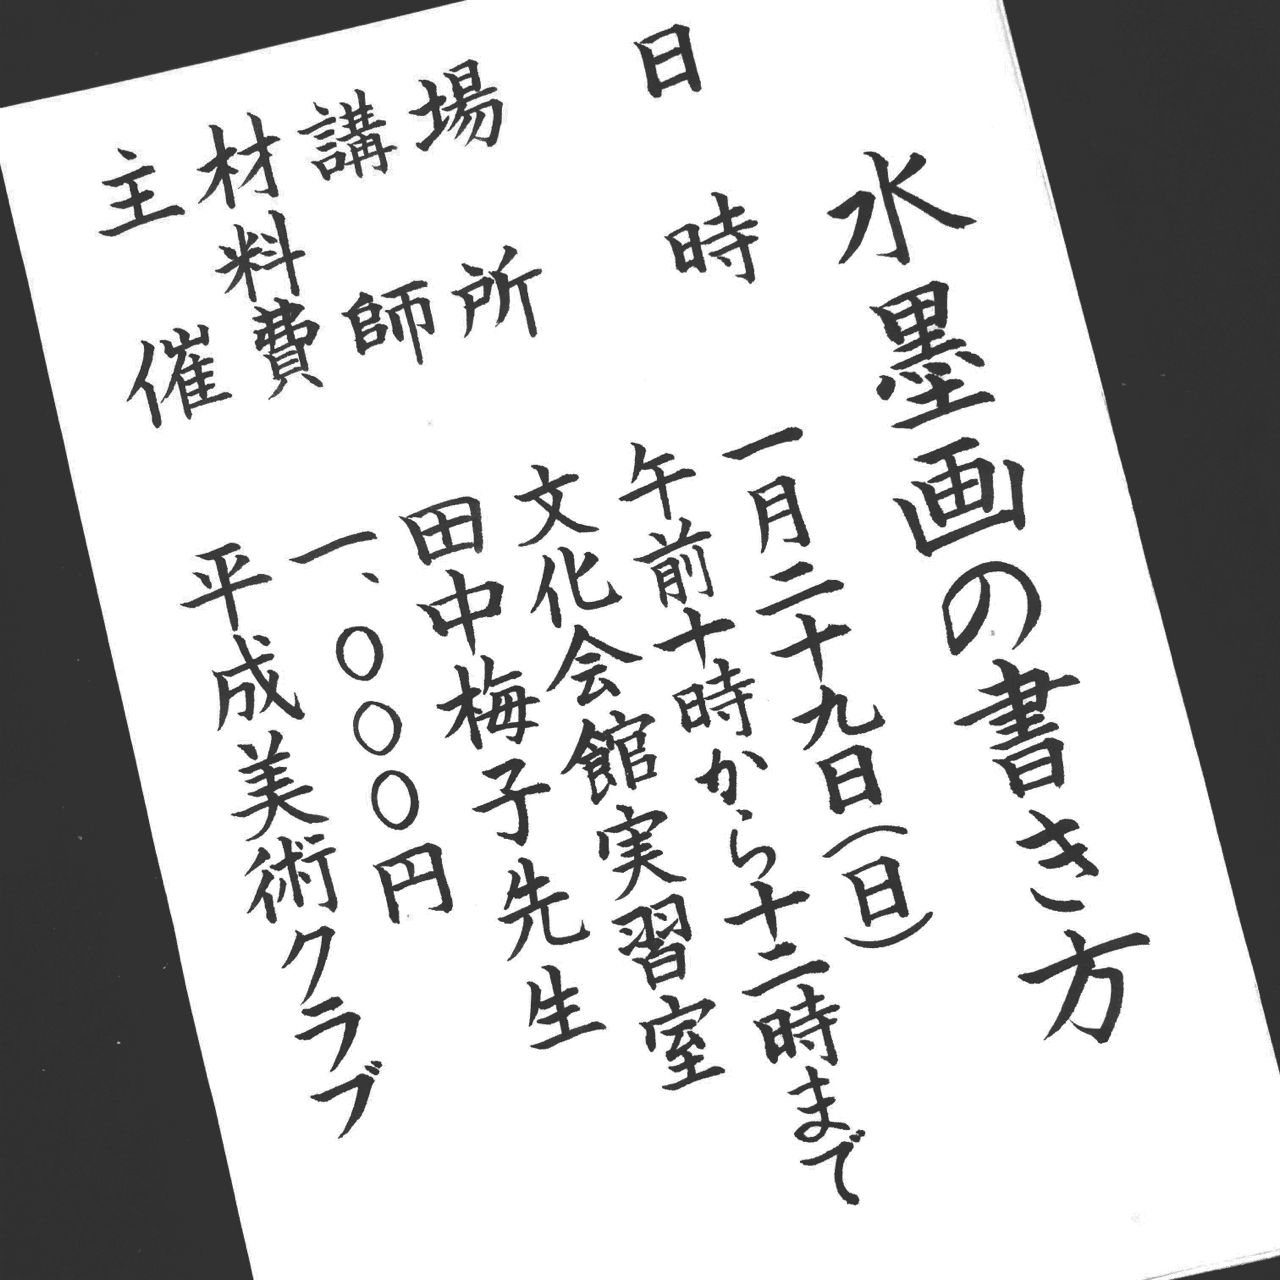 水墨画の書き方
日時 一月二十九日(日)
午前十時から十二時まで
場所 文化会館実習室
講師 田中梅子先生
材料費 一、〇〇〇円
主催 平成美術クラブ